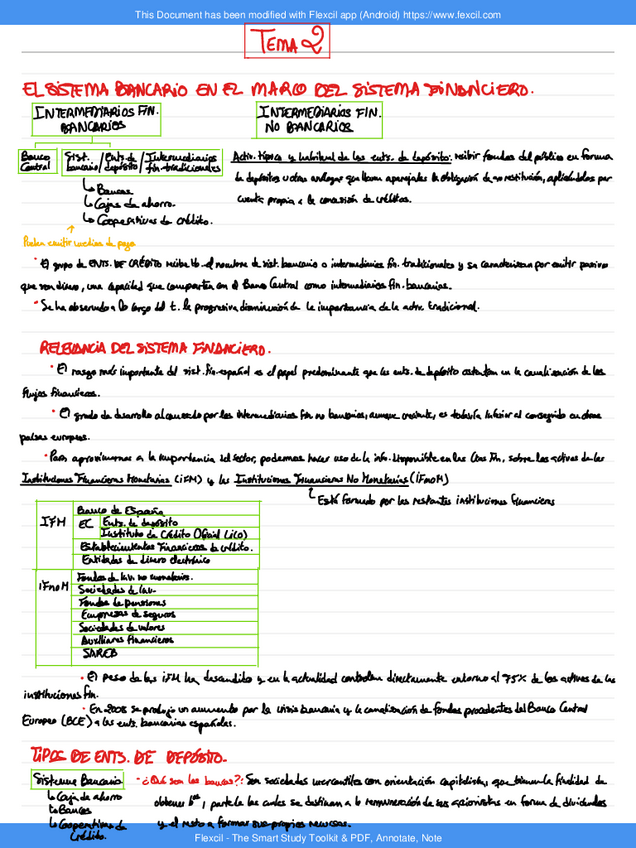 This Document has been modified with Flexcil app (Android) https://www.flexcil.com
TEMA 2
EL SISTEMA BANCARIO EN EL MARCO DEL SISTEMA FINANCIERO.
INTERMEDIARIOS FIN. BANCARIOS
INTERMEDIARIOS FIN. NO BANCARIOS
Banco Central
Sist. bancario / Ents. de depósito / Intermediarios fin. tradicionales
↳ Bancos
↳ Cajas de ahorro.
↳ Cooperativas de crédito.
Activ. típica y habitual de las ents. de depósito: recibir fondos del público en forma
de depósitos u otras análogas que llevan aparejadas la obligación de su restitución, aplicándolos por
cuenta propia a la concesión de créditos.
Pueden emitir medios de pago
• El grupo de ENTS. DE CRÉDITO recibe tb. el nombre de sist. bancario o intermediarios fin. tradicionales y se caracterizan por emitir pasivos
que son dinero, una capacidad que comparten con el Banco Central como intermediarios fin. bancarios.
• Se ha observado a lo largo del t. la progresiva disminución de la importancia de la activ. tradicional.
RELEVANCIA DEL SISTEMA FINANCIERO.
• El rasgo más importante del sist. fin. español es el papel predominante que las ents. de depósito ostentan en la canalización de los
flujos financieros.
• El grado de desarrollo alcanzado por los intermediarios fin. no bancarios, aunque creciente, es todavía inferior al conseguido en otros
países europeos.
• Para aproximarnos a la importancia del sector, podemos hacer uso de la info. disponible en las Ctas. Fin. sobre los activos de las
Instituciones Financieras Monetarias (IFM) y las Instituciones Financieras No Monetarias (IFnoM)
↳ Está formado por las restantes instituciones financieras
IFM
Banco de España
EC
Ents. de depósito
Instituto de Crédito Oficial (ICO)
Establecimientos Financieros de crédito.
Entidades de dinero electrónico
IFnoM
Fondos de inv. no monetarios.
Sociedades de inv.
Fondos de pensiones
Empresas de seguros
Sociedades de valores
Auxiliares financieros
SAREB
• El peso de las IFM ha descendido y en la actualidad controlan directamente entorno al 75% de los activos de las
instituciones fin.
• En 2008 se produjo un aumento por la crisis bancaria y la canalización de fondos procedentes del Banco Central
Europeo (BCE) a las ents. bancarias españolas.
TIPOS DE ENTS. DE DEPÓSITO.
Sistema Bancario
↳ Caja de ahorro
↳ Bancos
↳ Cooperativas de Crédito.
• ¿Qué son los bancos?: Son sociedades mercantiles con orientación capitalista, que tienen la finalidad de
obtener bºs, parte de los cuales se destinan a la remuneración de sus accionistas en forma de dividendos
y el resto a formar sus propias reservas.
Flexcil - The Smart Study Toolkit & PDF, Annotate, Note